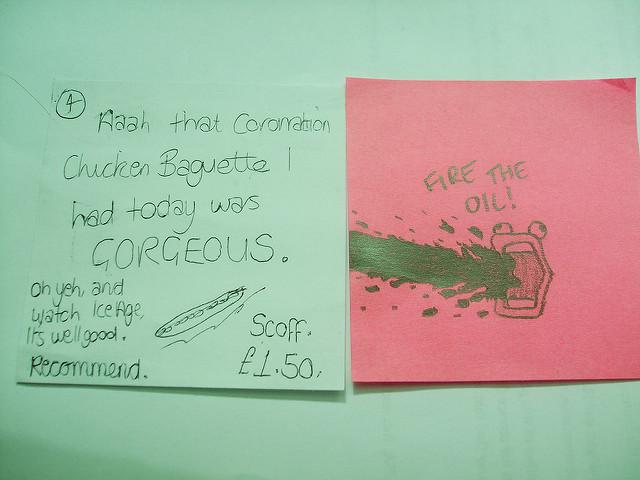 4
Aaah that Coronation
Chicken Baguette I
had today was
GORGEOUS.
Oh yeh, and
watch Ice Age,
It's well good.
Recommend.
Scoff.
£1.50.
FIRE THE
OIL!